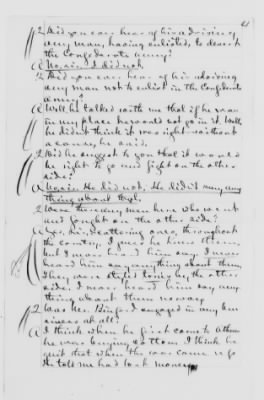 21
Q Did you ever hear of his advising
any man, having enlisted, to desert
the Confederate army?
A No, sir. I did not.
Q Did you ever hear of his advising
any man not to enlist in the Confederate
army?
A Well, he talked with me that if he was
in my place he would not go in it. Well,
he didn't think it was right—without
a cause, he said.
Q Did he suggest to you that it would
be right to go and fight on the other
side?
A No, sir. He did not. He didn't say any
thing about that.
Q Were there any men here who went
and fought on the other side?
A Yes, sir, scattering ones, throughout
the country. I guess he knew them,
but I never heard him say. I never
heard him say anything about them.
They were styled tories by the other
side. I never heard him say any
thing about them no way.
Q Was Mr. Binford engaged in any
business at all?
A I think when he first came to Athens
he was buying cotton. I think he
quit that when the war came up.
He told me had lost money